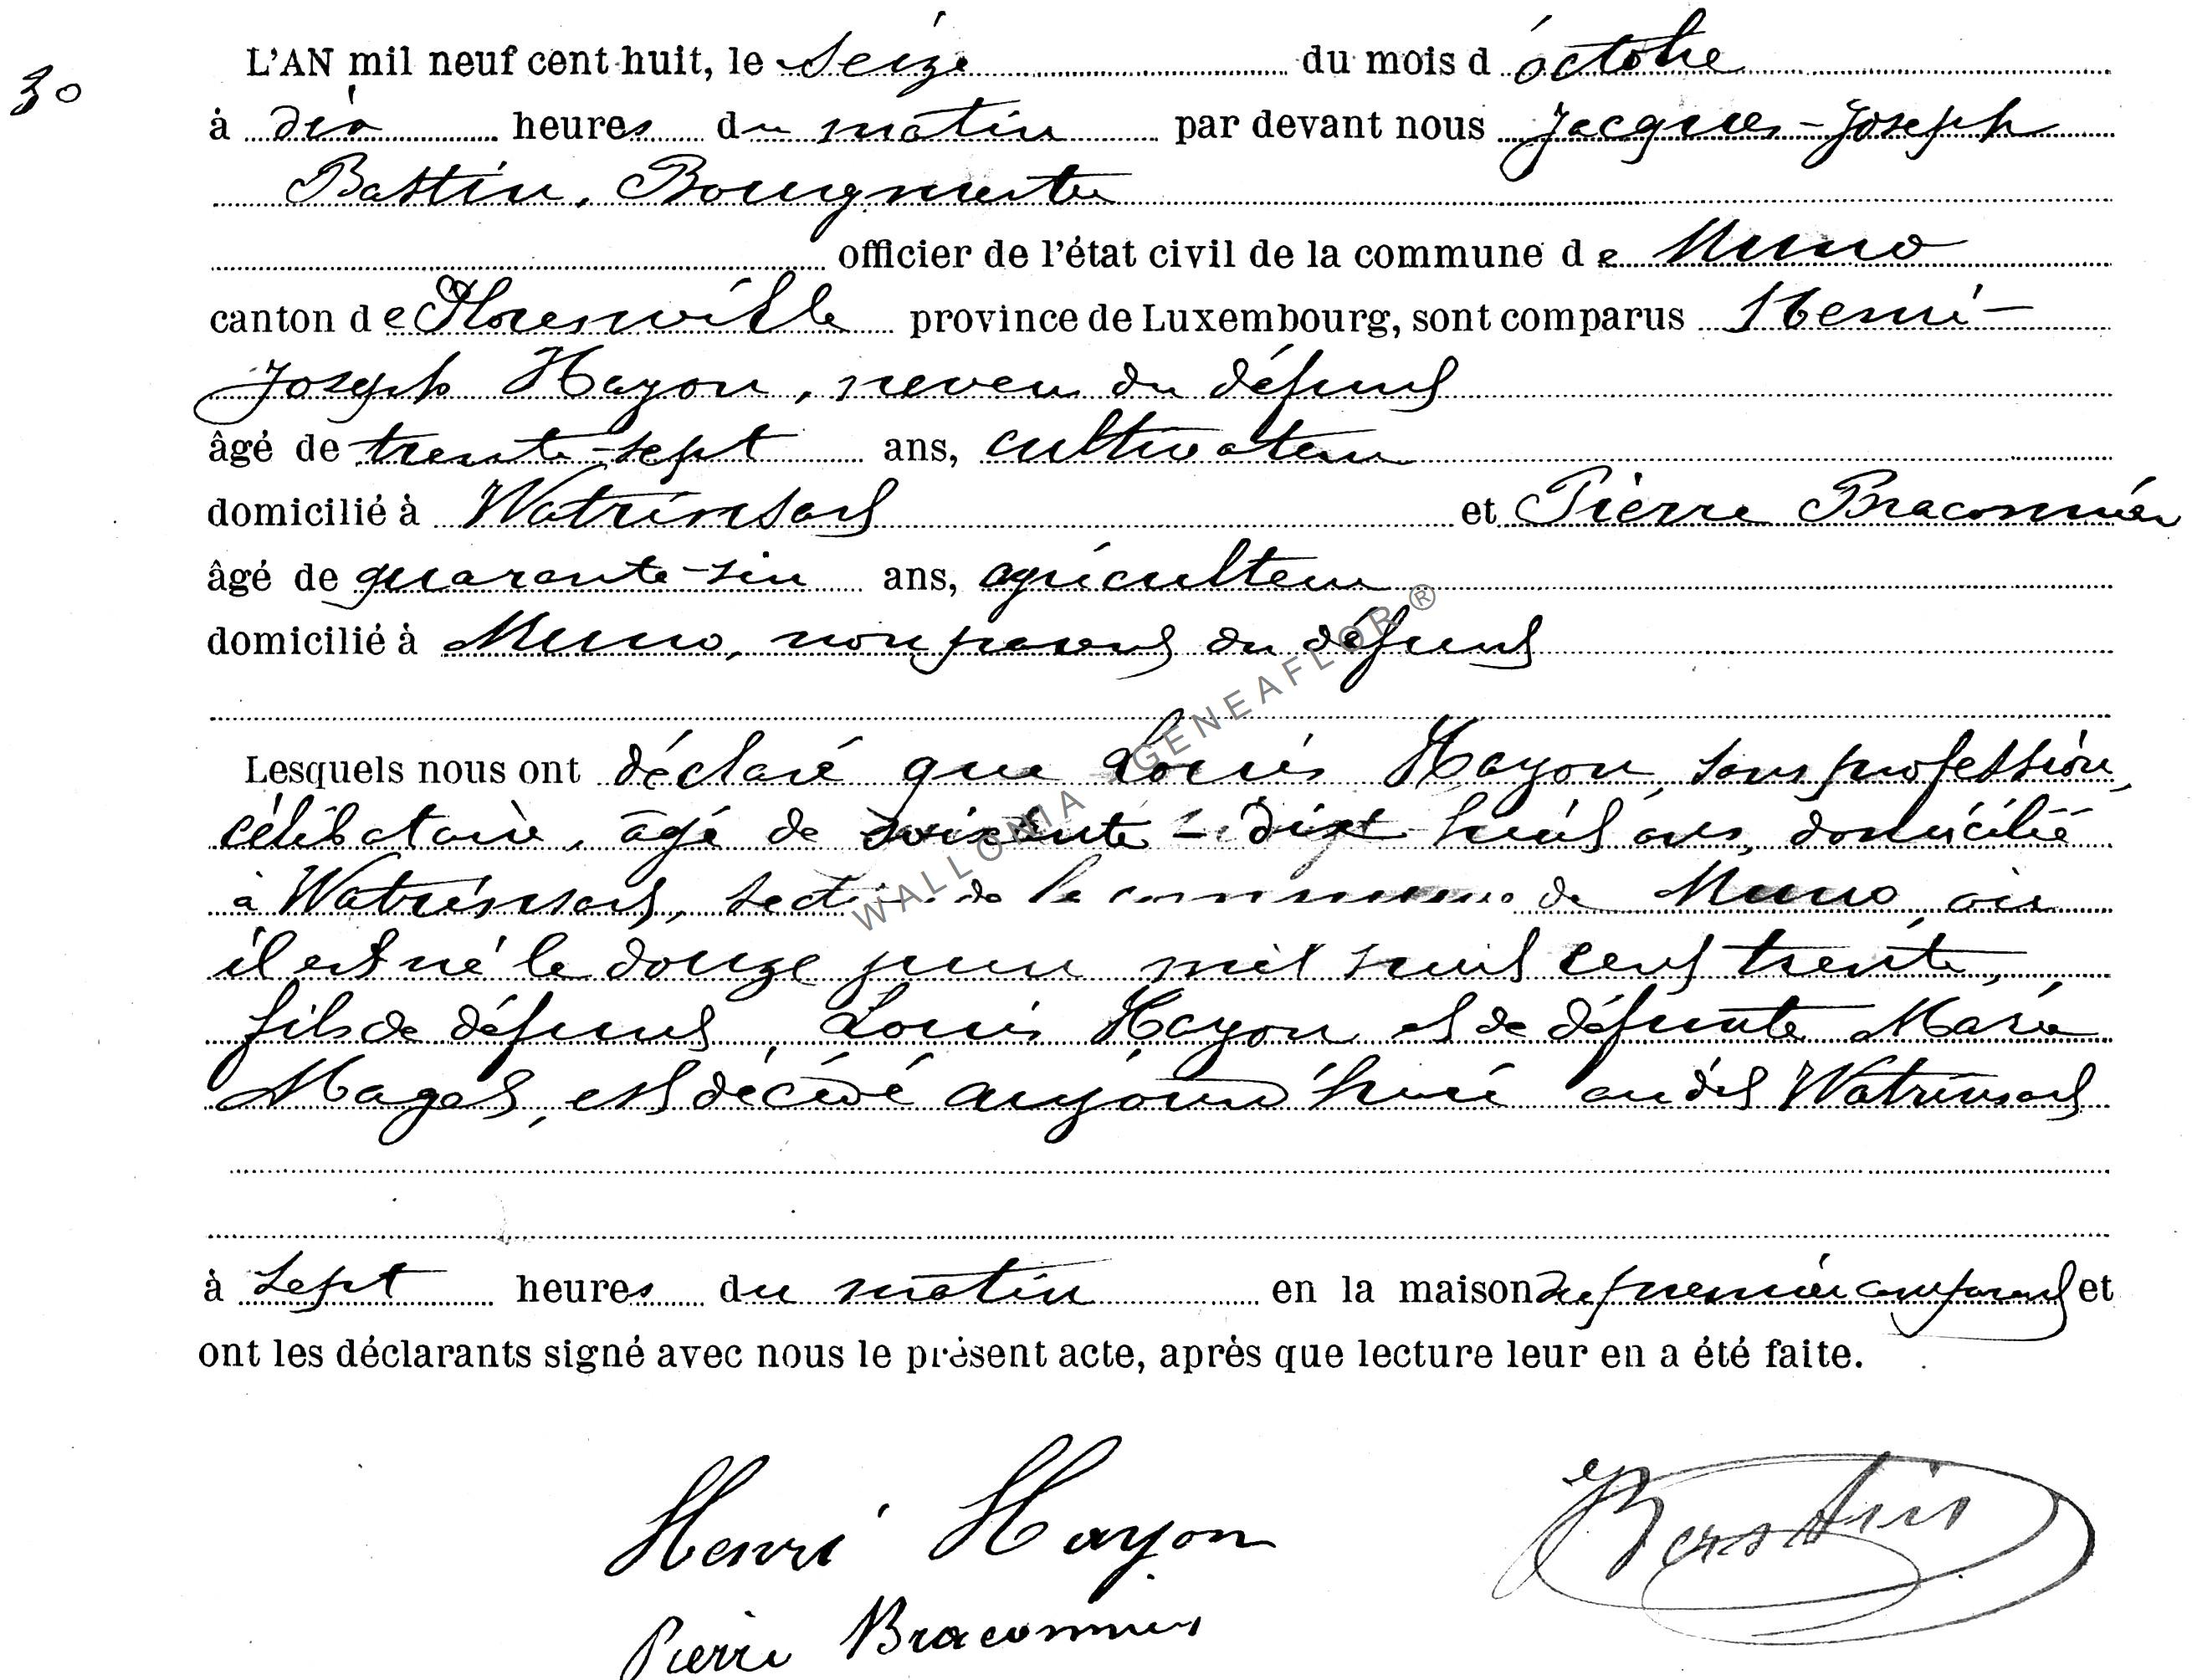 30
L'AN mil neuf cent huit, le seize du mois d'octobre
à dix heures du matin par devant nous Jacques-Joseph
Bastin, Bourgmestre
officier de l'état civil de la commune de Muno
canton de Florenville province de Luxembourg, sont comparus Henri-
Joseph Hayon, neveu du défunt
âgé de trente-sept ans, cultivateur
domicilié à Watrinsart et Pierre Braconnier
âgé de quarante-six ans, agriculteur
domicilié à Muno, non parent du défunt
Lesquels nous ont déclaré que Louis Hayon, sans profession,
célibataire, âgé de soixante-dix-huit ans, domicilié
à Watrinsart, section de la commune de Muno, où
il est né le douze juin mil huit cent trente,
fils de défunt Louis Hayon et de défunte Marie
Magot, est décédé aujourd'hui au dit Watrinsart
à sept heures du matin en la maison du premier comparant et
ont les déclarants signé avec nous le présent acte, après que lecture leur en a été faite.
Henri Hayon
Bastin
Pierre Braconnier
WALLONIA GENEAFLOR ®